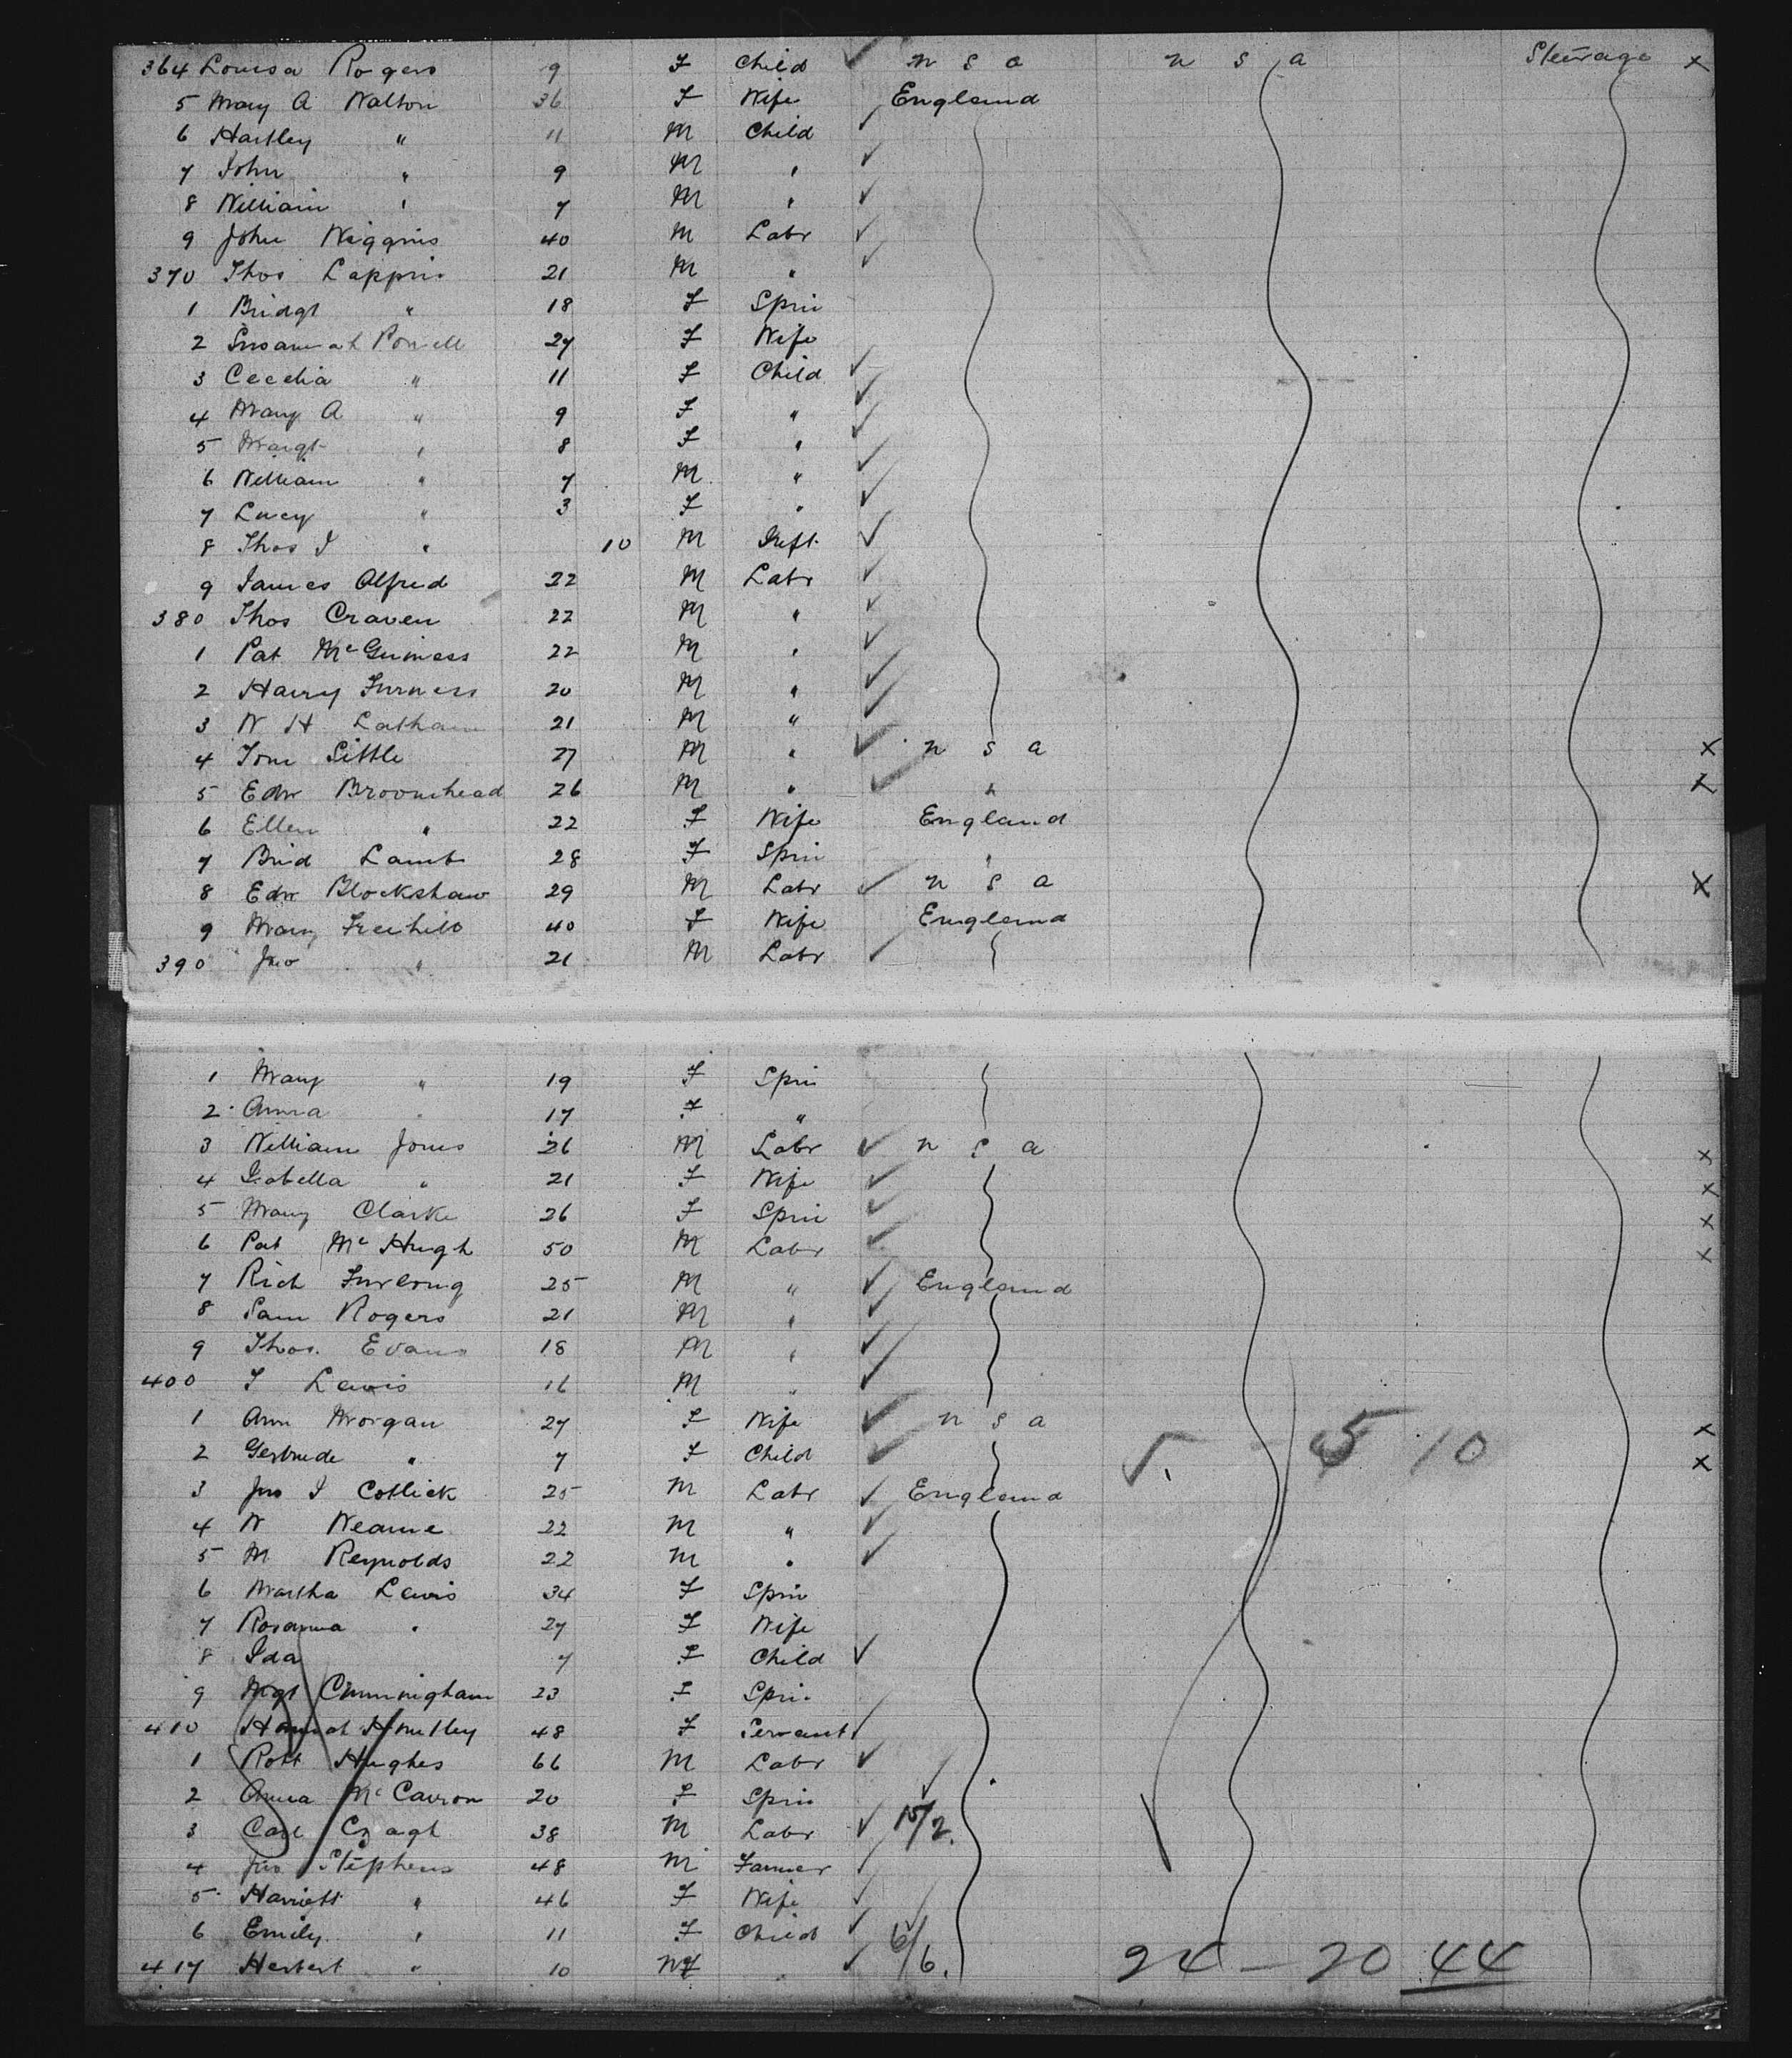 364 Louisa Rogers 9 F Child ✓ n s a n s a Steerage x
5 Mary A Walton 36 F Wife England
6 Hartley " 11 M Child ✓
7 John " 9 M " ✓
8 William " 7 M " ✓
9 John Wiggins 40 M Labr ✓
370 Thos Lappin 21 M " ✓
1 Bridgt " 18 F Spin
2 Susannah Powell 27 F Wife
3 Cecelia " 11 F Child ✓
4 Mary A " 9 F " ✓
5 Margt " 8 F " ✓
6 William " 7 M " ✓
7 Lucy " 3 F " ✓
8 Thos J " 10 M Inft ✓
9 James Alfred 22 M Labr ✓
380 Thos Craven 22 M " ✓
1 Pat McGuiness 22 M " ✓
2 Harry Furness 20 M " ✓
3 W H Latham 21 M " ✓
4 Tom Little 27 M " ✓ n s a x
5 Edw Broomhead 26 M " ✓ " x
6 Ellen " 22 F Wife England
7 Brid Lamb 28 F Spin "
8 Edw Blockshaw 29 M Labr ✓ n s a x
9 Mary 40 F Wife England
390 Jno " 21 M Labr ✓
1 Mary " 19 F Spin
2 Anna " 17 F "
3 William Jones 26 M Labr ✓ n s a x
4 Isabella " 21 F Wife ✓ x
5 Mary Clarke 26 F Spin ✓ x
6 Pat McHugh 50 M Labr ✓ x
7 Rich Furlong 25 M " ✓ England
8 Sam Rogers 21 M " ✓
9 Thos. Evans 18 M " ✓
400 J Lewis 16 M " ✓
1 Ann Morgan 27 F Wife ✓ n s a x
2 Gertrude " 7 F Child ✓ 5 10 x
3 Jno J Cotlick 25 M Labr ✓ England
4 W Wearne 22 M " ✓
5 M Reynolds 22 M " ✓
6 Martha Lewis 34 F Spin
7 Rosanna " 27 F Wife
8 Ida 7 F Child ✓
9 Mgt Cunningham 23 F Spin
410 Hannah Huntley 48 F Servant
1 Robt Hughes 66 M Labr ✓
2 Anna McCarron 20 F Spin ✓
3 Carl 38 M Labr ✓ 15/2.
4 Jno Stephens 48 M Farmer ✓
5 Harriett " 46 F Wife ✓
6 Emily " 11 F Child ✓
417 Herbert " 10 M " ✓ 6/6. 24 - 20 44